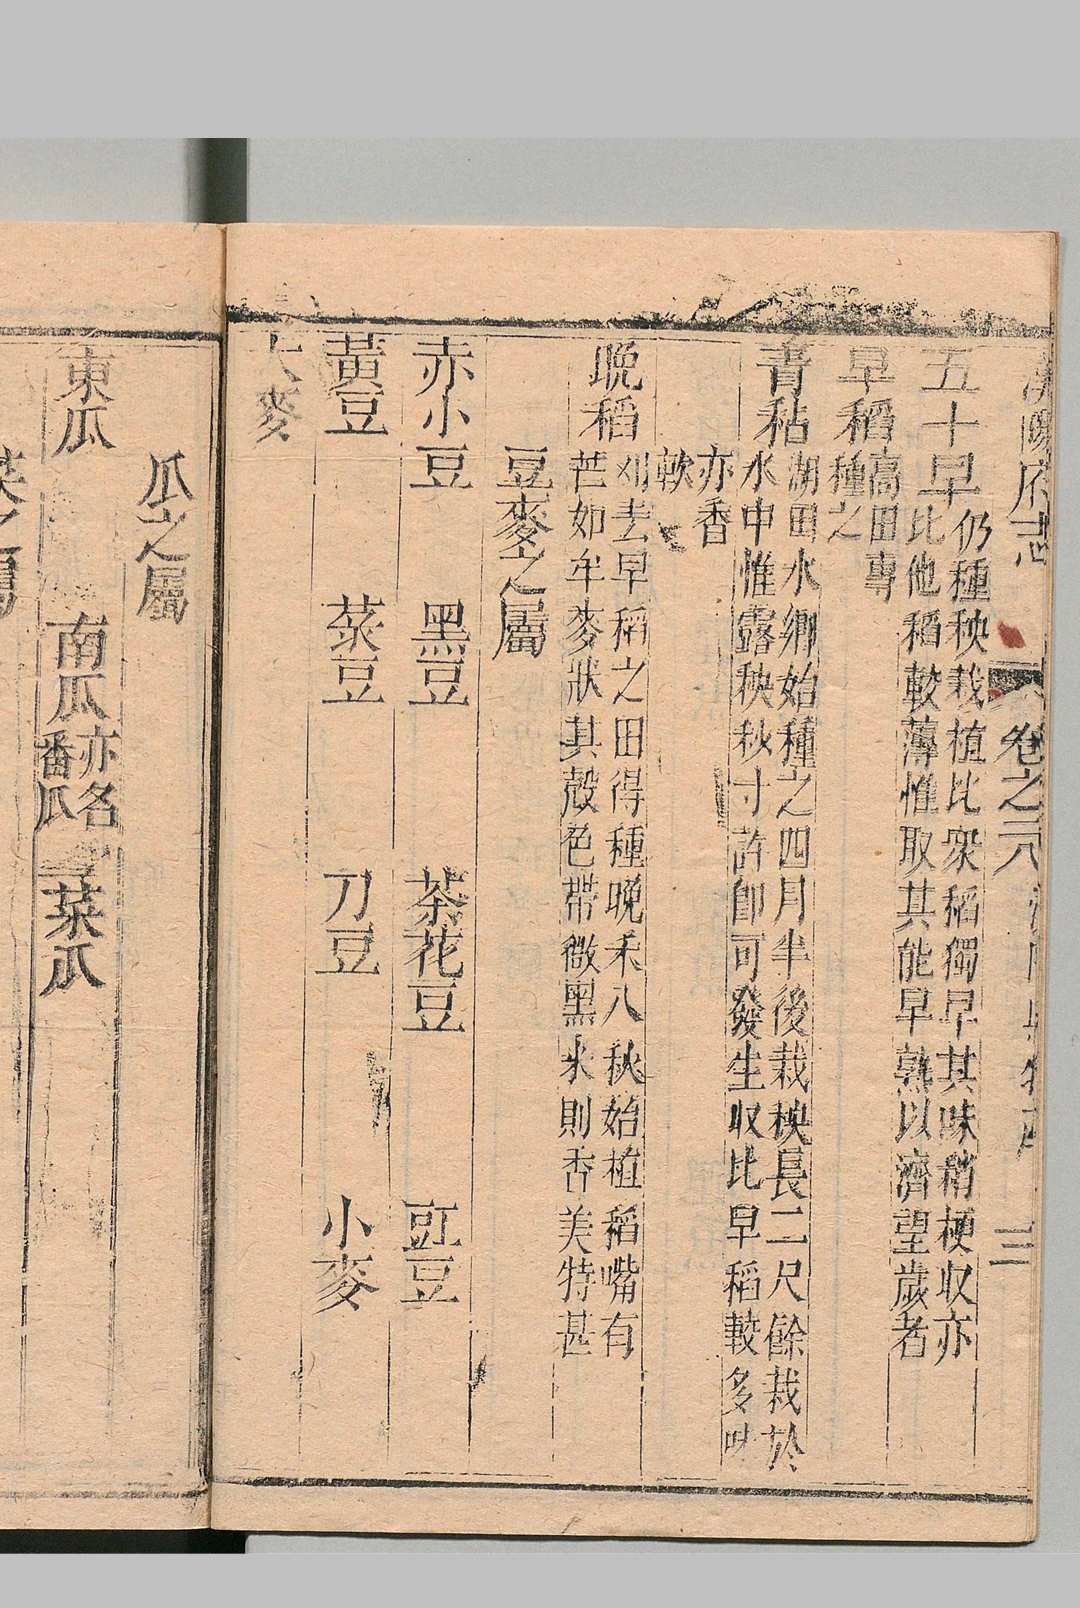 漢陽府志 卷之二八 漢陽縣物產 三
五十早 仍種秧栽植比衆稻獨早其味稍梗収亦
比他稻較薄惟取其能早熟以濟望歲者
早稻 高田專
種之
青秥 湖田水鄉始種之四月半後栽秧長二尺餘栽於
水中惟露秧秋寸許卽可發生収比早稻較多味
亦香
軟
晩稻 刈去早稻之田得種晚禾八秋始植稻嘴有
芒如牟麥狀其殼色帶微黑米則香美特甚
豆麥之屬
赤小豆 黑豆 茶花豆 豇豆
黃豆 菉豆 刀豆 小麥
大麥
瓜之屬
東瓜 南瓜 亦名
番瓜 菜瓜
菜之屬